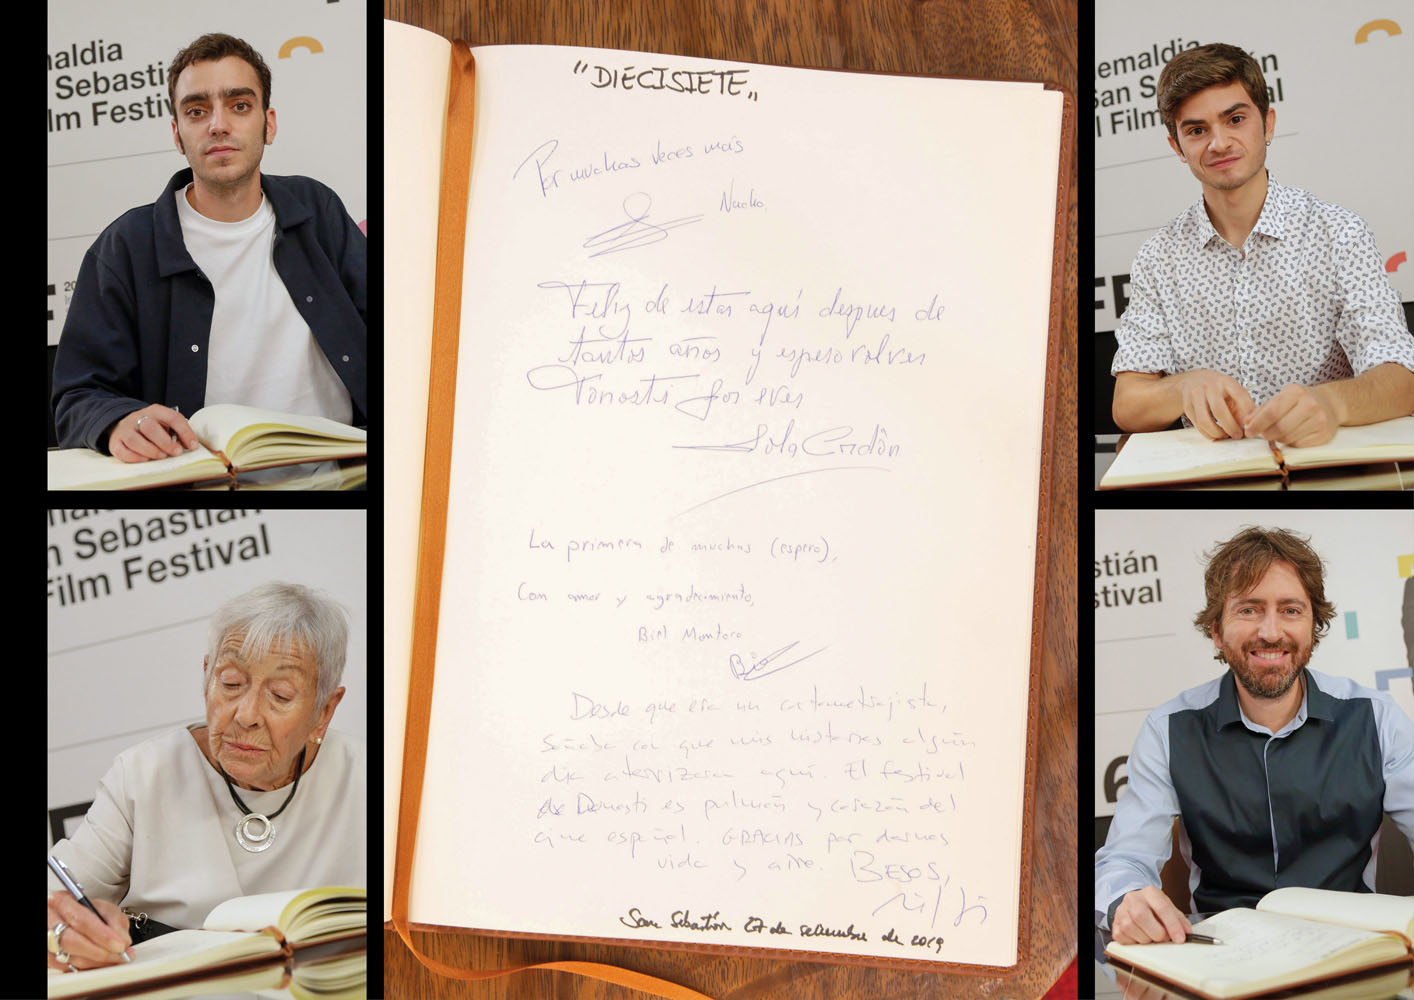 naldia
Sebastiá
lm Festiv
20
"DIECISIETE„
Por muchas veces más
Nacho.
Feliz de estar aquí despues de
tantos años y espero volver
Donosti for ever
Lola Cordón
La primera de muchas (espero),
Con amor y agradecimiento,
Biel Montoro
Biel
Desde que era un cortometrajista,
soñaba con que mis historias algún
día aterrizaran aquí. El festival
de Donosti es pulmón y corazón del
cine español. GRACIAS por darnos
vida y aire. BESOS,
San Sebastián 27 de setiembre de 2019
emaldia
San S án
l Film al
n Sebastián
Film Festival
stián
stival
6